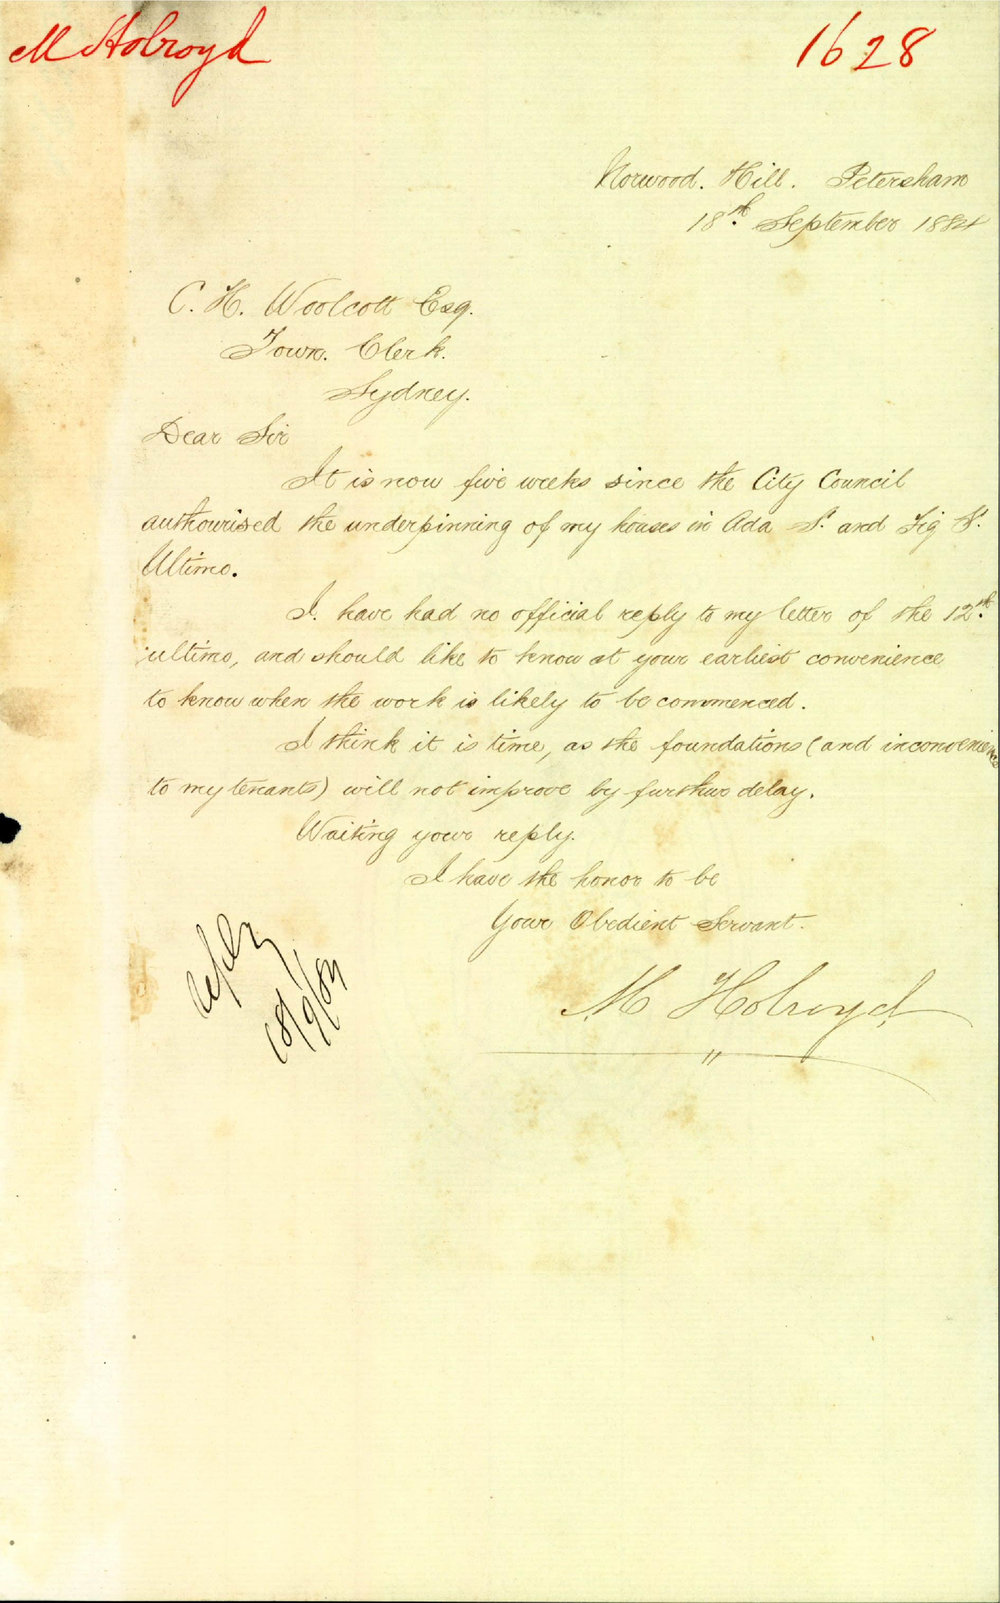 M Holroyd
1628
Norwood. Hill. Petersham
18th. September 1884
C. H. Woolcott Esq.
Town. Clerk.
Sydney.
Dear Sir
It is now five weeks since the City Council
authourised the underpinning of my houses in Ada St. and Fig St.
Ultimo.
I. have had no official reply to my letter of the 12th.
ultimo, and should like to know at your earliest convenience
to know when the work is likely to be commenced.
I think it is time, as the foundations (and inconvenience
to my tenants) will not improve by further delay.
Waiting your reply.
I have the honor to be
Your Obedient Servant.
M Holroyd
reply
18/9/84